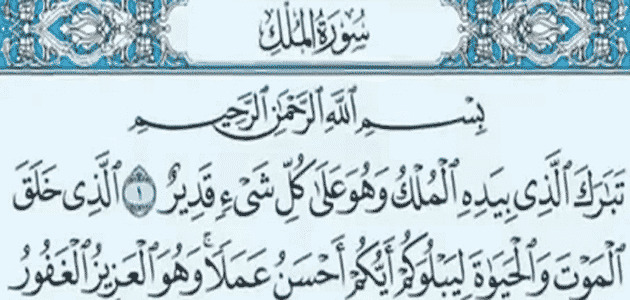 سُورَةُ المُلْكِ
بِسْمِ ٱللَّهِ ٱلرَّحْمَٰنِ ٱلرَّحِيمِ
تَبَٰرَكَ ٱلَّذِى بِيَدِهِ ٱلْمُلْكُ وَهُوَ عَلَىٰ كُلِّ شَىْءٍ قَدِيرٌ ١ ٱلَّذِى خَلَقَ
ٱلْمَوْتَ وَٱلْحَيَوٰةَ لِيَبْلُوَكُمْ أَيُّكُمْ أَحْسَنُ عَمَلًا ۚ وَهُوَ ٱلْعَزِيزُ ٱلْغَفُورُ